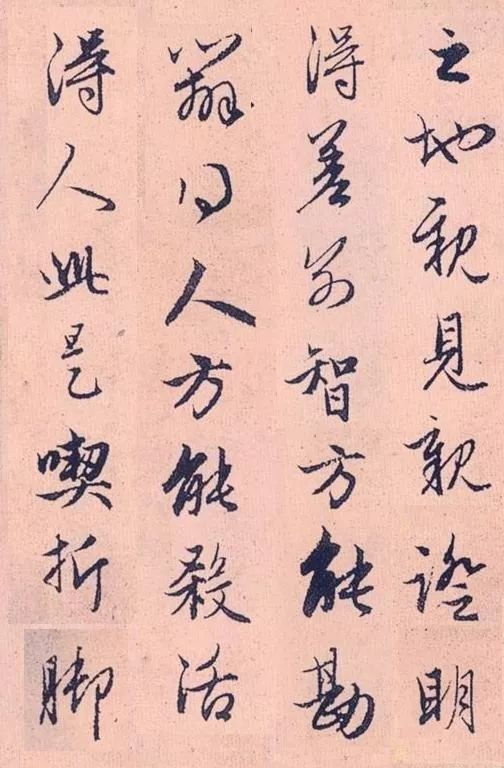 之地親見親證明
得差別智方能勘
辨得人方能殺活
得人此是喫折脚